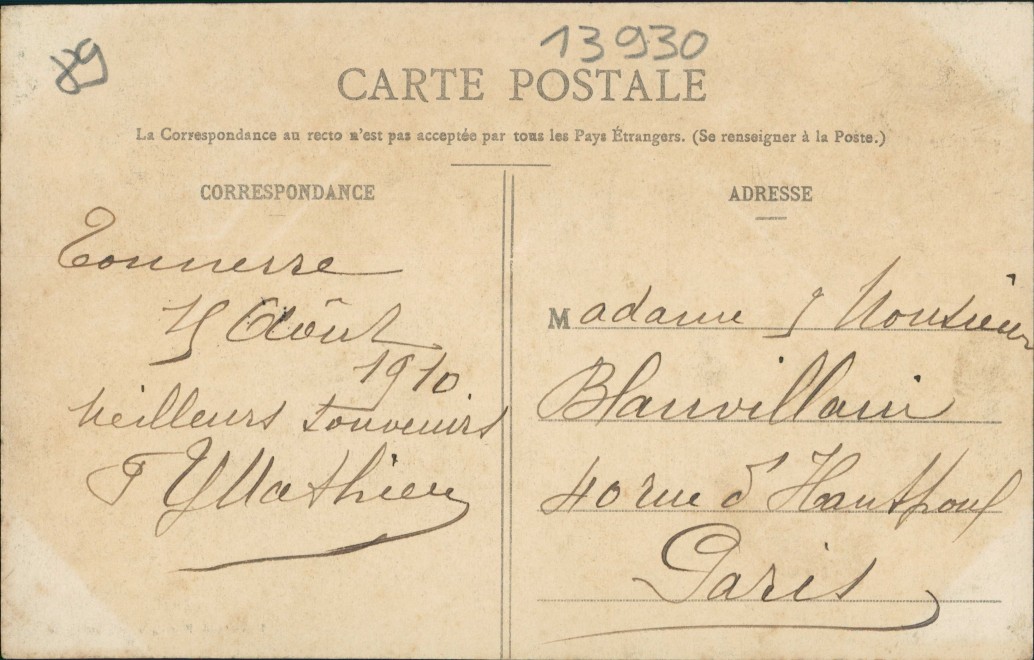 89
13930
CARTE POSTALE
La Correspondance au recto n'est pas acceptée par tous les Pays Étrangers. (Se renseigner à la Poste.)
CORRESPONDANCE
Tonnerre
15 Août
1910
Meilleurs Souvenirs
Mathieu
ADRESSE
Madame & Monsieur
Blanvillain
40 rue d'Hautpoul
Paris